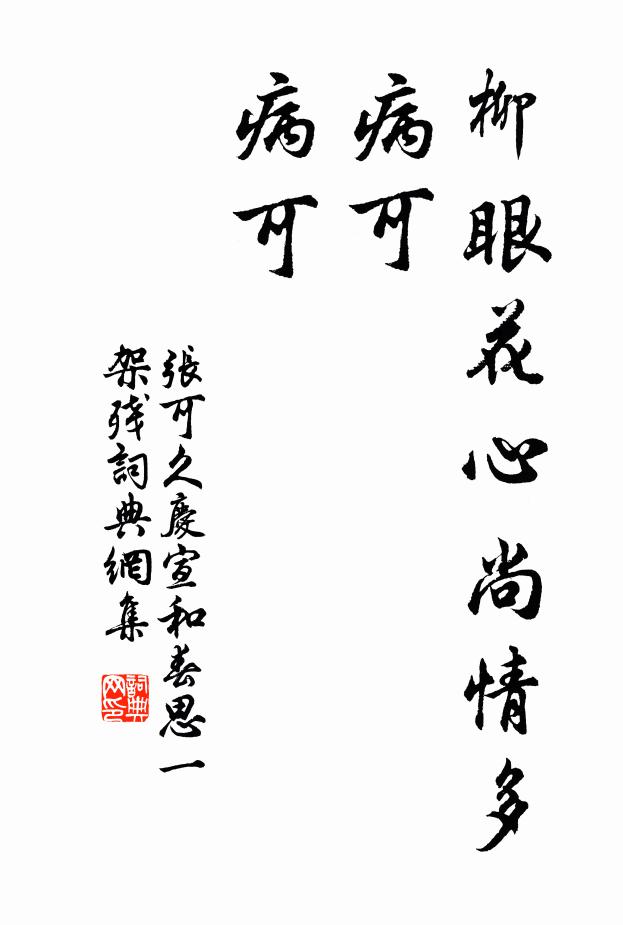 柳眼花心尚情多
病可
病可
張可久慶宣和春思一
架残詞典網集
詞典网印